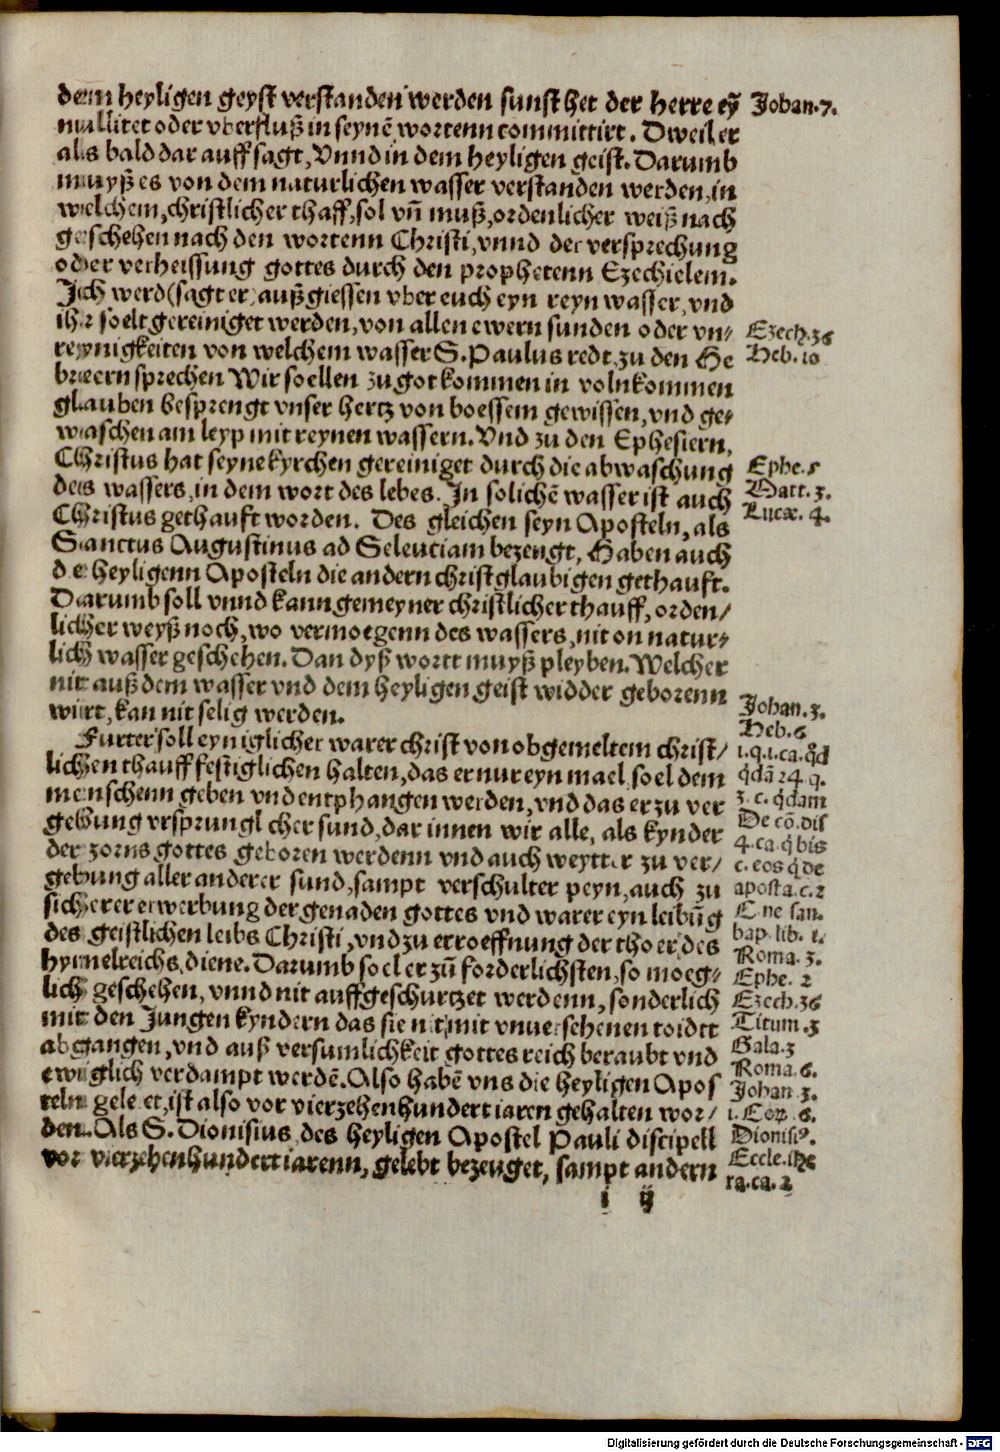 dem heyligen geyst verstanden werden sunst het der herre eyn̄ Johan.7.
nullitet oder vberfluß in seynē wortenn committirt. Dweil er
als bald dar auff sagt, Vnnd in dem heyligen geist. Darumb
muyß es von dem naturlichen wasser verstanden werden, in
welchem, christlicher thaff, sol vn̄ muß, ordenlicher weiß nach
geschehen nach den wortenn Christi, vnnd der versprechung
oder verheissung gottes durch den prophetenn Ezechielem.
Jch werd (sagt er) außgiessen vber euch eyn reyn wasser, vnd
ihr soelt gereiniget werden, von allen ewern sunden oder vn⸗ Ezech.36
reynigkeiten von welchem wasser S. Paulus redt zu den He Heb.10
breern sprechen Wir soellen zu got kommen in volnkommen
glauben besprengt vnser hertz von boessem gewissen, vnd ge⸗
waschen am leyp mit reynen wassern. Vnd zu den Ephesiern,
Christus hat seyne kyrchen gereiniget durch die abwaschung Ephe.5
des wassers, in dem wort des lebes. Jn solichē wasser ist auch Matt.3.
Christus gethauft worden. Des gleichen seyn Aposteln, als Lucæ.4.
Sanctus Augustinus ad Seleuciam bezengt, Haben auch
die heyligenn Aposteln die andern christglaubigen gethauft.
Darumb soll vnnd kann gemeyner christlicher thauff, orden/
licher weyß noch, wo vermoegenn des wassers, nit on natur⸗
lich wasser geschehen. Dan dyß wortt muyß pleyben. Welcher
nit auß dem wasser vnd dem heyligen geist widder geborenn
wirt, kan nit selig werden. Johan.3.
Furter soll eyn iglicher warer christ von obgemeltem christ/ Heb.6
lichen thauff festiglichen halten, das er nur eyn mael soel dem i.q.i.ca.q̄d
menschenn geben vnd entphangen werden, vnd das er zu ver q̄dā 24.q.
gebung vrsprunglicher sund, dar innen wir alle, als kynder 3.c.q̄dam
der zorns gottes geboren werdenn vnd auch weytter zu ver/ De cō.dis
gebung aller anderer sund, sampt verschulter peyn, auch zu 4.ca.q̄ bis
sicherer erwerbung der genaden gottes vnd warer eyn leibūg c.eos q̄ de
des geistlichen leibs Christi, vnd zu erroeffnung der thoer des aposta.c.2
hymelreichs, diene. Darumb soel er zū forderlichsten, so moeg⸗ E ne san.
lich geschehen, vnnd nit auffgeschurtzet werdenn, sonderlich bap.lib.1.
mit den Jungen kyndern das sie nit mit vnuersehenen toidtt Roma.3.
abgangen, vnd auß versumlichkeit gottes reich beraubt vnd Ephe.2
ewiglich verdampt werdē. Also habē vns die heyligen Apos Ezech.36
teln geleret, ist also vor vierzehenhundert iaren gehalten wor/ Titum.3
den. Als S. Dionisius, des heyligen Apostel Pauli discipell Gala.3
vor vierzehenhundert iarenn, gelebt bezeuget, sampt andern Roma.6.
Johan.3.
1.Cor.6.
Dionisiꝰ.
Eccle.ihe
ra.ca.2
i ij
Digitalisierung gefördert durch die Deutsche Forschungsgemeinschaft - DFG